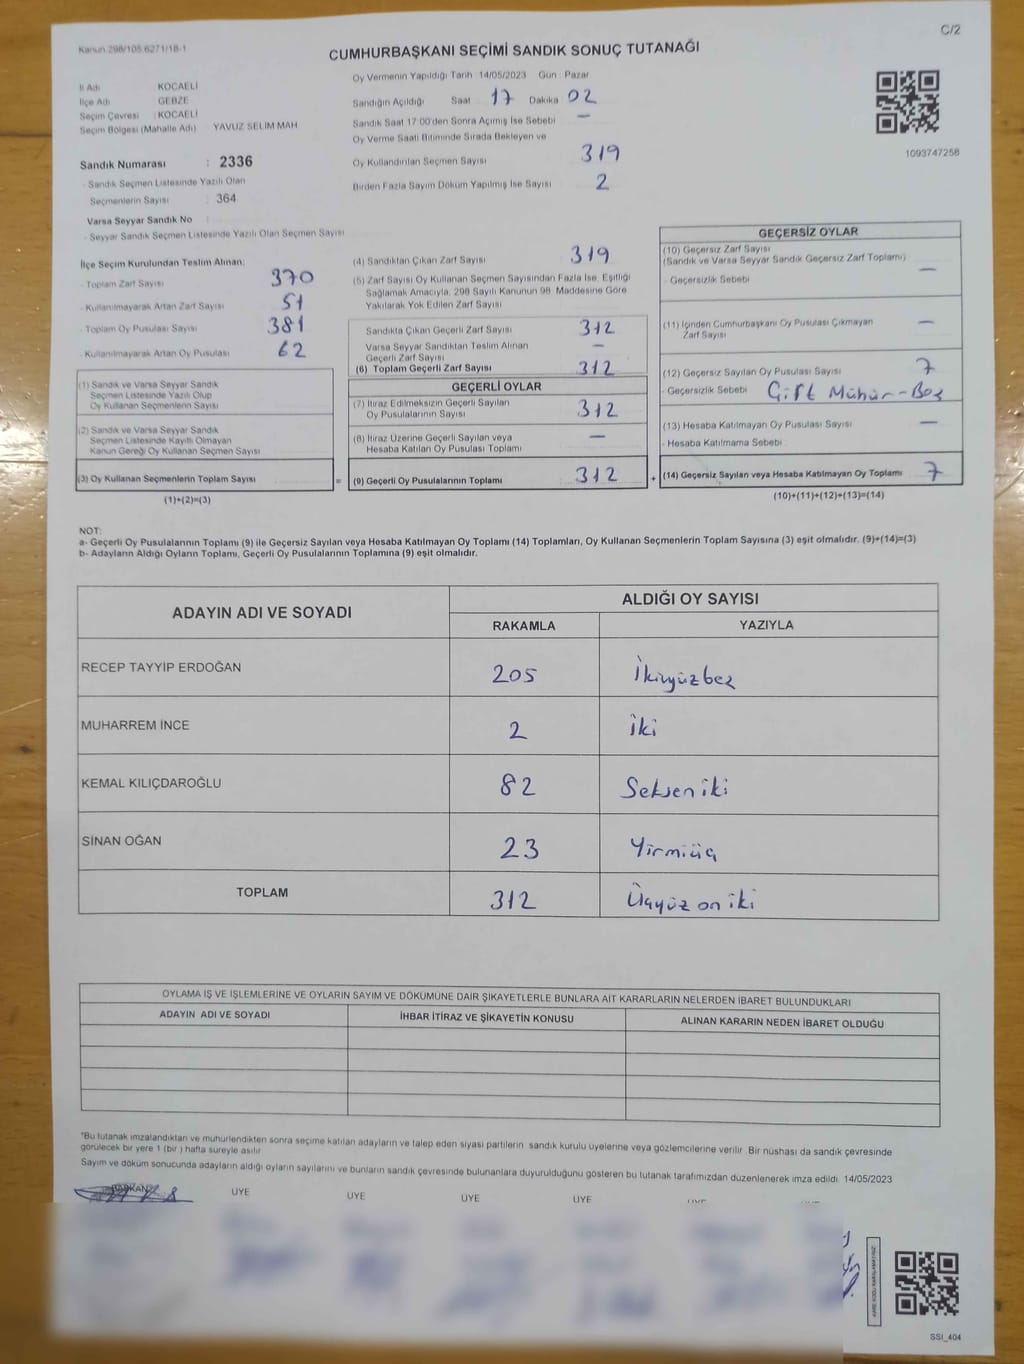 Kanun 298/105 6271/18-1
C/2
CUMHURBAŞKANI SEÇİMİ SANDIK SONUÇ TUTANAĞI
İl Adı KOCAELİ
İlçe Adı GEBZE
Seçim Çevresi : KOCAELİ
Seçim Bölgesi (Mahalle Adı) YAVUZ SELİM MAH
Oy Vermenin Yapıldığı Tarih 14/05/2023 Gün : Pazar
Sandığın Açıldığı Saat 17 Dakika 02
Sandık Saat 17:00'den Sonra Açımış İse Sebebi —
Oy Verme Saati Bitiminde Sırada Bekleyen ve
Oy Kullandırılan Seçmen Sayısı 319
Birden Fazla Sayım Döküm Yapılmış İse Sayısı 2
1093747258
Sandık Numarası : 2336
- Sandık Seçmen Listesinde Yazılı Olan
Seçmenlerin Sayısı : 364
Varsa Seyyar Sandık No
- Seyyar Sandık Seçmen Listesinde Yazılı Olan Seçmen Sayısı
İlçe Seçim Kurulundan Teslim Alınan:
- Toplam Zarf Sayısı 370
- Kullanılmayarak Artan Zarf Sayısı 51
- Toplam Oy Pusulası Sayısı 381
- Kullanılmayarak Artan Oy Pusulası 62
(1) Sandık ve Varsa Seyyar Sandık
Seçmen Listesinde Yazılı Olup
Oy Kullanan Seçmenlerin Sayısı
(2) Sandık ve Varsa Seyyar Sandık
Seçmen Listesinde Kayıtlı Olmayan
Kanun Gereği Oy Kullanan Seçmen Sayısı
(3) Oy Kullanan Seçmenlerin Toplam Sayısı
(1)+(2)=(3)
=
(4) Sandıktan Çıkan Zarf Sayısı 319
(5) Zarf Sayısı Oy Kullanan Seçmen Sayısından Fazla İse, Eşitliği
Sağlamak Amacıyla, 298 Sayılı Kanunun 98. Maddesine Göre
Yakılarak Yok Edilen Zarf Sayısı
Sandıkta Çıkan Geçerli Zarf Sayısı 312
Varsa Seyyar Sandıktan Teslim Alınan
Geçerli Zarf Sayısı —
(6) Toplam Geçerli Zarf Sayısı 312
GEÇERLİ OYLAR
(7) İtiraz Edilmeksizin Geçerli Sayılan
Oy Pusulalarının Sayısı 312
(8) İtiraz Üzerine Geçerli Sayılan veya
Hesaba Katılan Oy Pusulası Toplamı —
(9) Geçerli Oy Pusulalarının Toplamı 312
+
GEÇERSİZ OYLAR
(10) Geçersiz Zarf Sayısı
(Sandık ve Varsa Seyyar Sandık Geçersiz Zarf Toplamı) —
- Geçersizlik Sebebi
(11) İçinden Cumhurbaşkanı Oy Pusulası Çıkmayan
Zarf Sayısı —
(12) Geçersiz Sayılan Oy Pusulası Sayısı 7
- Geçersizlik Sebebi Çift Mühür-Boş
(13) Hesaba Katılmayan Oy Pusulası Sayısı —
- Hesaba Katılmama Sebebi
(14) Geçersiz Sayılan veya Hesaba Katılmayan Oy Toplamı 7
(10)+(11)+(12)+(13)=(14)
NOT:
a- Geçerli Oy Pusulalarının Toplamı (9) ile Geçersiz Sayılan veya Hesaba Katılmayan Oy Toplamı (14) Toplamları, Oy Kullanan Seçmenlerin Toplam Sayısına (3) eşit olmalıdır. (9)+(14)=(3)
b- Adayların Aldığı Oyların Toplamı, Geçerli Oy Pusulalarının Toplamına (9) eşit olmalıdır.
ADAYIN ADI VE SOYADI ALDIĞI OY SAYISI
RAKAMLA YAZIYLA
RECEP TAYYİP ERDOĞAN 205 İkiyüzbeş
MUHARREM İNCE 2 iki
KEMAL KILIÇDAROĞLU 82 Seksen iki
SİNAN OĞAN 23 Yirmiüç
TOPLAM 312 Üçyüz on iki
OYLAMA İŞ VE İŞLEMLERİNE VE OYLARIN SAYIM VE DÖKÜMÜNE DAİR ŞİKAYETLERLE BUNLARA AİT KARARLARIN NELERDEN İBARET BULUNDUKLARI
ADAYIN ADI VE SOYADI İHBAR İTİRAZ VE ŞİKAYETİN KONUSU ALINAN KARARIN NEDEN İBARET OLDUĞU
*Bu tutanak imzalandıktan ve mühürlendikten sonra seçime katılan adayların ve talep eden siyasi partilerin sandık kurulu üyelerine veya gözlemcilerine verilir. Bir nüshası da sandık çevresinde
görülecek bir yere 1 (bir) hafta süreyle asılır
Sayım ve döküm sonucunda adayların aldığı oyların sayılarını ve bunların sandık çevresinde bulunanlara duyurulduğunu gösteren bu tutanak tarafımızdan düzenlenerek imza edildi. 14/05/2023
BAŞKAN ÜYE ÜYE ÜYE ÜYE
SSI_404